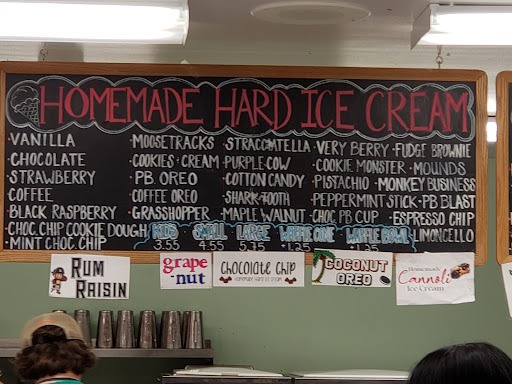 HOMEMADE HARD ICE CREAM
VANILLA
·CHOCOLATE
STRAWBERRY
COFFEE
BLACK RASPBERRY
CHOC.CHIP COOKIE DOUGH
MINT CHOC. CHIP
·MOOSETRACKS
·COOKIES+CREAM
·PB OREO
COFFEE OREO
GRASSHOPPER
·STRACCIATELLA
·PURPLE COW
·COTTON CANDY
·SHARK-TOOTH
MAPLE WALNUT
·VERY BERRY ·FUDGE BROWNIE
COOKIE MONSTER ·MOUNDS
PISTACHIO ·MONKEY BUSINESS
PEPPERMINT STICK ·PB BLAST
CHOC PB CUP ·ESPRESSO CHIP
LIMONCELLO
KIDS SMALL LARGE WAFFLE CONE WAFFLE BOWL
3.55 4.55 5.15 1.25 1.25
RUM
RAISIN
grape
·nut
CHOCOLATE CHIP
HOMEMADE HARD ICE CREAM
COCONUT
OREO
Homemade
Cannoli
Ice Cream